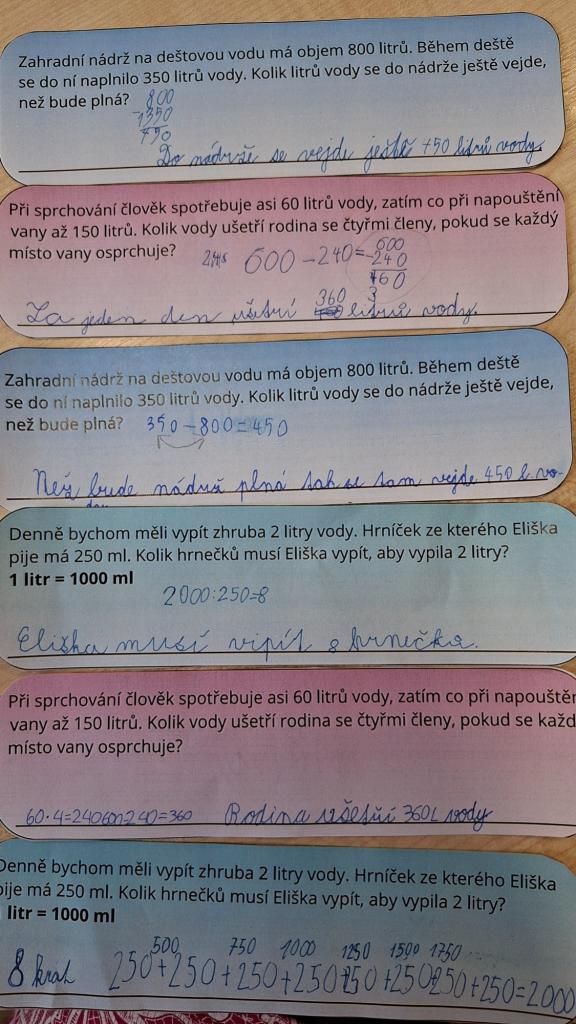 Zahradní nádrž na dešťovou vodu má objem 800 litrů. Během deště
se do ní naplnilo 350 litrů vody. Kolik litrů vody se do nádrže ještě vejde,
než bude plná?
800
-350
450
Do nádrže se vejde ještě 450 litrů vody.
Při sprchování člověk spotřebuje asi 60 litrů vody, zatím co při napouštění
vany až 150 litrů. Kolik vody ušetří rodina se čtyřmi členy, pokud se každý
místo vany osprchuje?
600-240=
600
-240
160
3
360
Za jeden den ušetří litrů vody.
Zahradní nádrž na dešťovou vodu má objem 800 litrů. Během deště
se do ní naplnilo 350 litrů vody. Kolik litrů vody se do nádrže ještě vejde,
než bude plná?
350-800=450
Než bude nádrž plná tak se tam vejde 450 l vo-
Denně bychom měli vypít zhruba 2 litry vody. Hrníček ze kterého Eliška
pije má 250 ml. Kolik hrnečků musí Eliška vypít, aby vypila 2 litry?
1 litr = 1000 ml
2000:250=8
Eliška musí vipít 8 hrnečka.
Při sprchování člověk spotřebuje asi 60 litrů vody, zatím co při napouštěn
vany až 150 litrů. Kolik vody ušetří rodina se čtyřmi členy, pokud se každ
místo vany osprchuje?
60·4=240 600-240=360 Rodina ušetří 360L vody
Denně bychom měli vypít zhruba 2 litry vody. Hrníček ze kterého Eliška
pije má 250 ml. Kolik hrnečků musí Eliška vypít, aby vypila 2 litry?
litr = 1000 ml
500 750 1000 1250 1500 1750
8 krat 250+250+250+250+250+250+250+250=2000